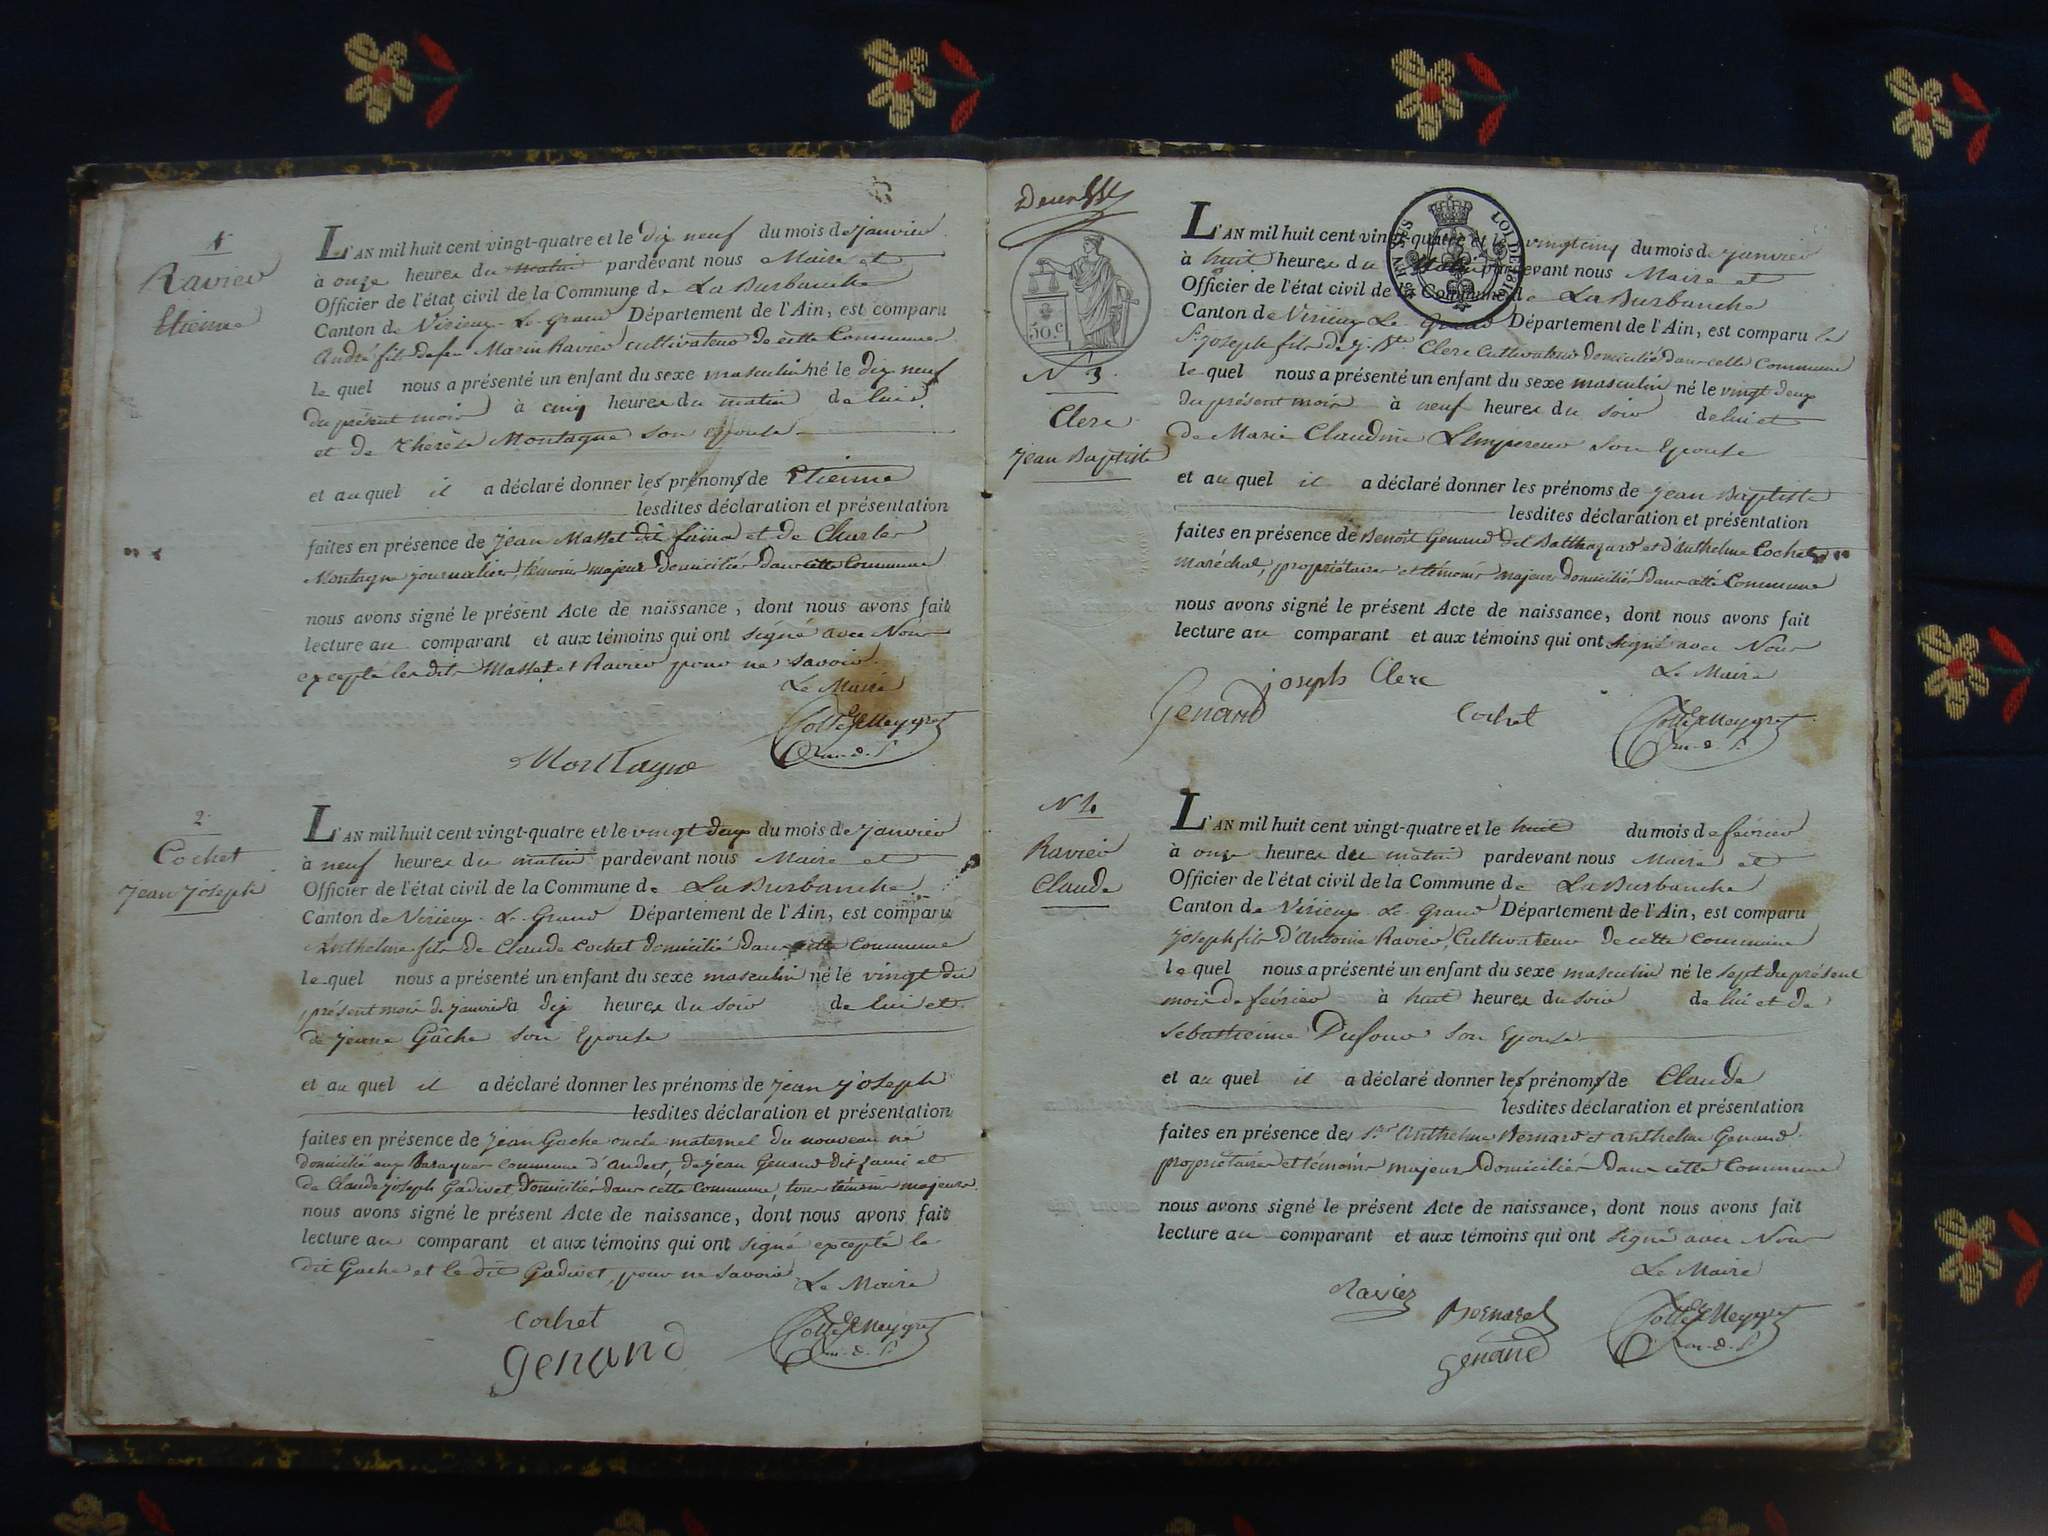 1
Ravier
Etienne
L'AN mil huit cent vingt-quatre et le dix neuf du mois de janvier
à onze heures du matin pardevant nous Maire et
Officier de l'état civil de la Commune de La Burbanche
Canton de Virieux-Le-grand Département de l'Ain, est comparu
André fils de feu Marin Ravier cultivateur de cette Commune
le quel nous a présenté un enfant du sexe masculin né le dix neuf
du présent mois à cinq heures du matin de lui
et de Therèse Montagne son Epouse
et au quel il a déclaré donner les prénoms de Etienne
lesdites déclaration et présentation
faites en présence de jean Masset dit et de Charles
Montagne journalier, témoins majeurs domiciliés dans cette Commune
nous avons signé le présent Acte de naissance, dont nous avons fait
lecture au comparant et aux témoins qui ont signé avec Nous
excepté les dits Masset et Ravier pour ne savoir.
Le Maire
Montagne
2
Cochet
jean joseph
L'AN mil huit cent vingt-quatre et le vingt deux du mois de janvier
à neuf heures du matin pardevant nous Maire et
Officier de l'état civil de la Commune de La Burbanche
Canton de Virieux-Le-Grand Département de l'Ain, est comparu
Anthelme fils de Claude Cochet domicilié dans cette Commune
le quel nous a présenté un enfant du sexe masculin né le vingt du
présent mois de janvier à dix heures du soir de lui et
de jeanne Gâche son Epouse
et au quel il a déclaré donner les prénoms de jean joseph
lesdites déclaration et présentation
faites en présence de jean Gache oncle maternel du nouveau né
domicilié aux Baraques commune d'Andert, de jean Genand dit jami et
de Claude joseph Gadivet, domiciliés dans cette Commune, tous témoins majeurs
nous avons signé le présent Acte de naissance, dont nous avons fait
lecture au comparant et aux témoins qui ont signé excepté le
dit Gache et le dit Gadivet, pour ne savoir
Le Maire
Cochet
Genand
50 c
N 3
Clerc
jean Baptiste
LOI DE 1816
L'AN mil huit cent vingt-quatre et le vingt cinq du mois de janvier
à huit heures du pardevant nous Maire et
Officier de l'état civil de la Commune de La Burbanche
Canton de Virieux Le Grand Département de l'Ain, est comparu le
Sr joseph fils de j. Bte Clerc Cultivateur domicilié dans cette Commune
le quel nous a présenté un enfant du sexe masculin né le vingt deux
du présent mois à neuf heures du soir de lui et
de Marie Claudine Lempereur son Epouse
et au quel il a déclaré donner les prénoms de jean Baptiste
lesdites déclaration et présentation
faites en présence de Benoît Genand dit Balthazard et d'Anthelme Cochet
maréchal, propriétaires et témoins majeurs domiciliés dans cette Commune
nous avons signé le présent Acte de naissance, dont nous avons fait
lecture au comparant et aux témoins qui ont signé avec Nous
Le Maire
joseph Clerc
Genand
Cochet
N 4
Ravier
Claude
L'AN mil huit cent vingt-quatre et le huit du mois de février
à onze heures du matin pardevant nous Maire et
Officier de l'état civil de la Commune de La Burbanche
Canton de Virieux-Le-grand Département de l'Ain, est comparu
joseph fils d'Antoine Ravier, Cultivateur de cette Commune
le quel nous a présenté un enfant du sexe masculin né le sept du présent
mois de février à huit heures du soir de lui et de
Sebastienne Dufour son Epouse
et au quel il a déclaré donner les prénoms de Claude
lesdites déclaration et présentation
faites en présence des Srs Anthelme Bernard et Anthelme Genand
propriétaires et témoins majeurs domiciliés dans cette Commune
nous avons signé le présent Acte de naissance, dont nous avons fait
lecture au comparant et aux témoins qui ont signé avec Nous
Le Maire
Ravier
Bernard
Genand